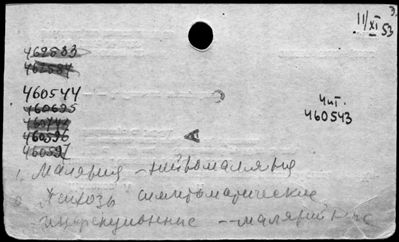 11/XI 53
462583
462584
460544
460625
460596
460597
Чит.
460543
1. Малярия - нейромалярия
Психозы симптоматические
инфекционные -- малярийные